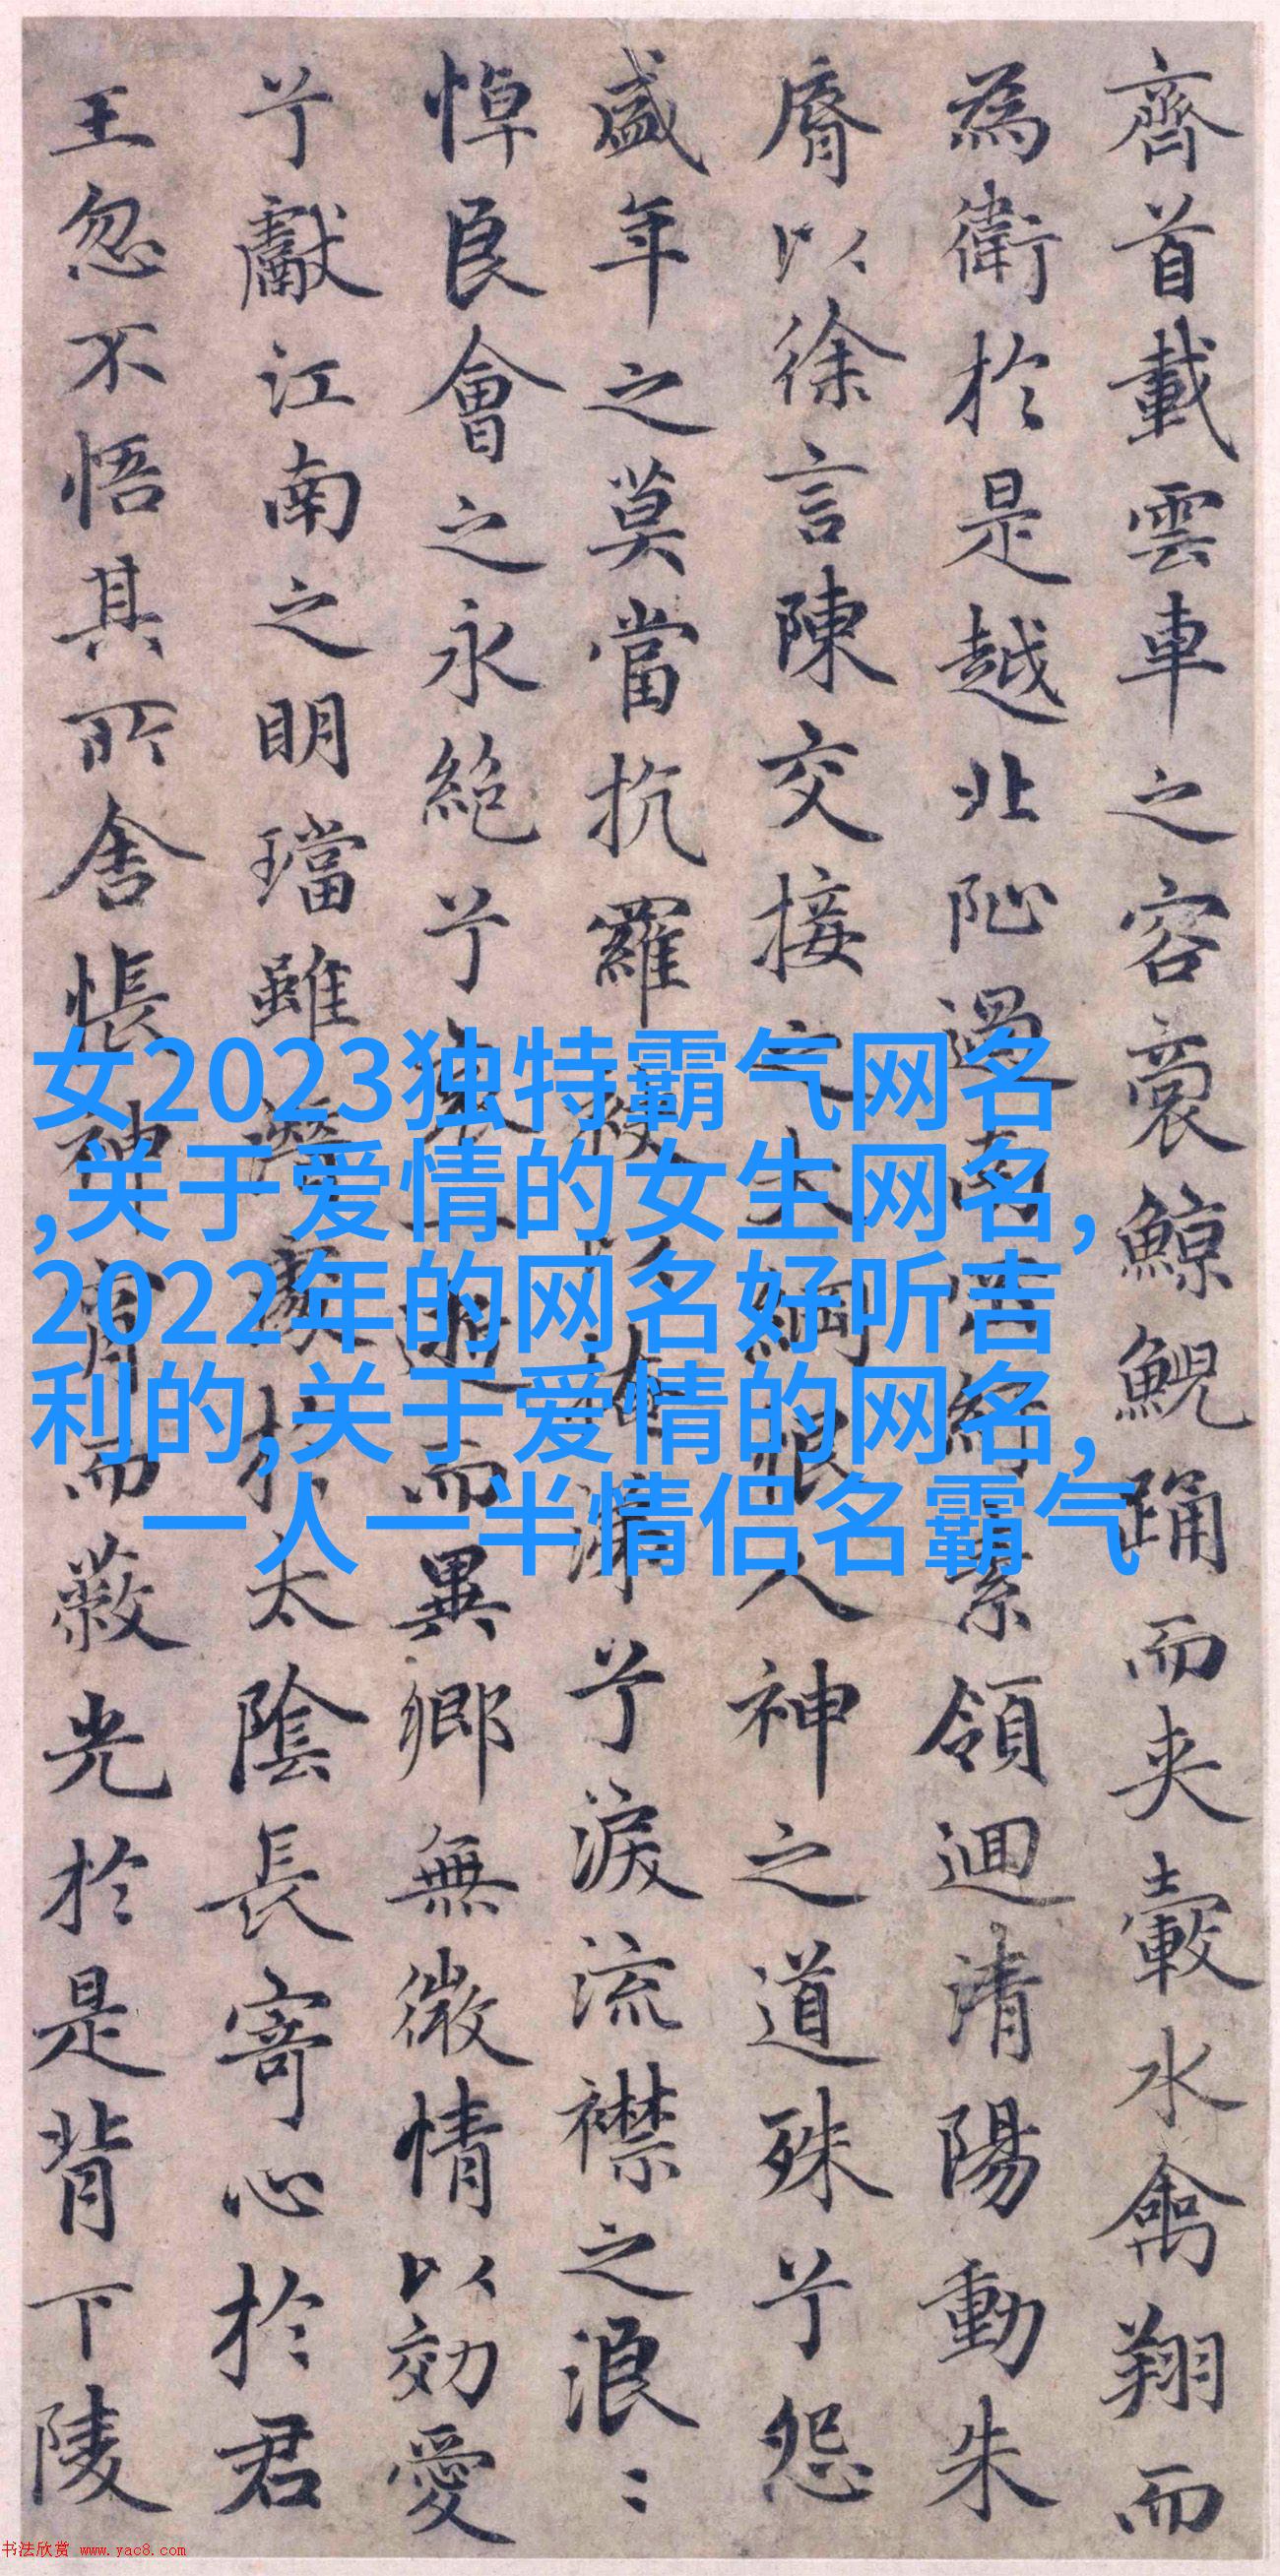 齊首載雲車之容裔鯨鯢踊而夾轂水禽翔而
為衛於是越北沚過南岡紆素領迴清陽動朱
脣以徐言陳交接之大綱恨人神之道殊兮怨
盛年之莫當抗羅袂以掩涕兮淚流襟之浪〻
悼良會之永絕兮哀一逝而異鄉無微情以効愛
兮獻江南之明璫雖潛處於太陰長寄心於君
王忽不悟其所舍悵神宵而蔽光於是背下陵
女2023独特霸气网名
,关于爱情的女生网名,
2022年的网名好听吉
利的,关于爱情的网名,
一人一半情侣名霸气
书法欣赏 www.yac8.com